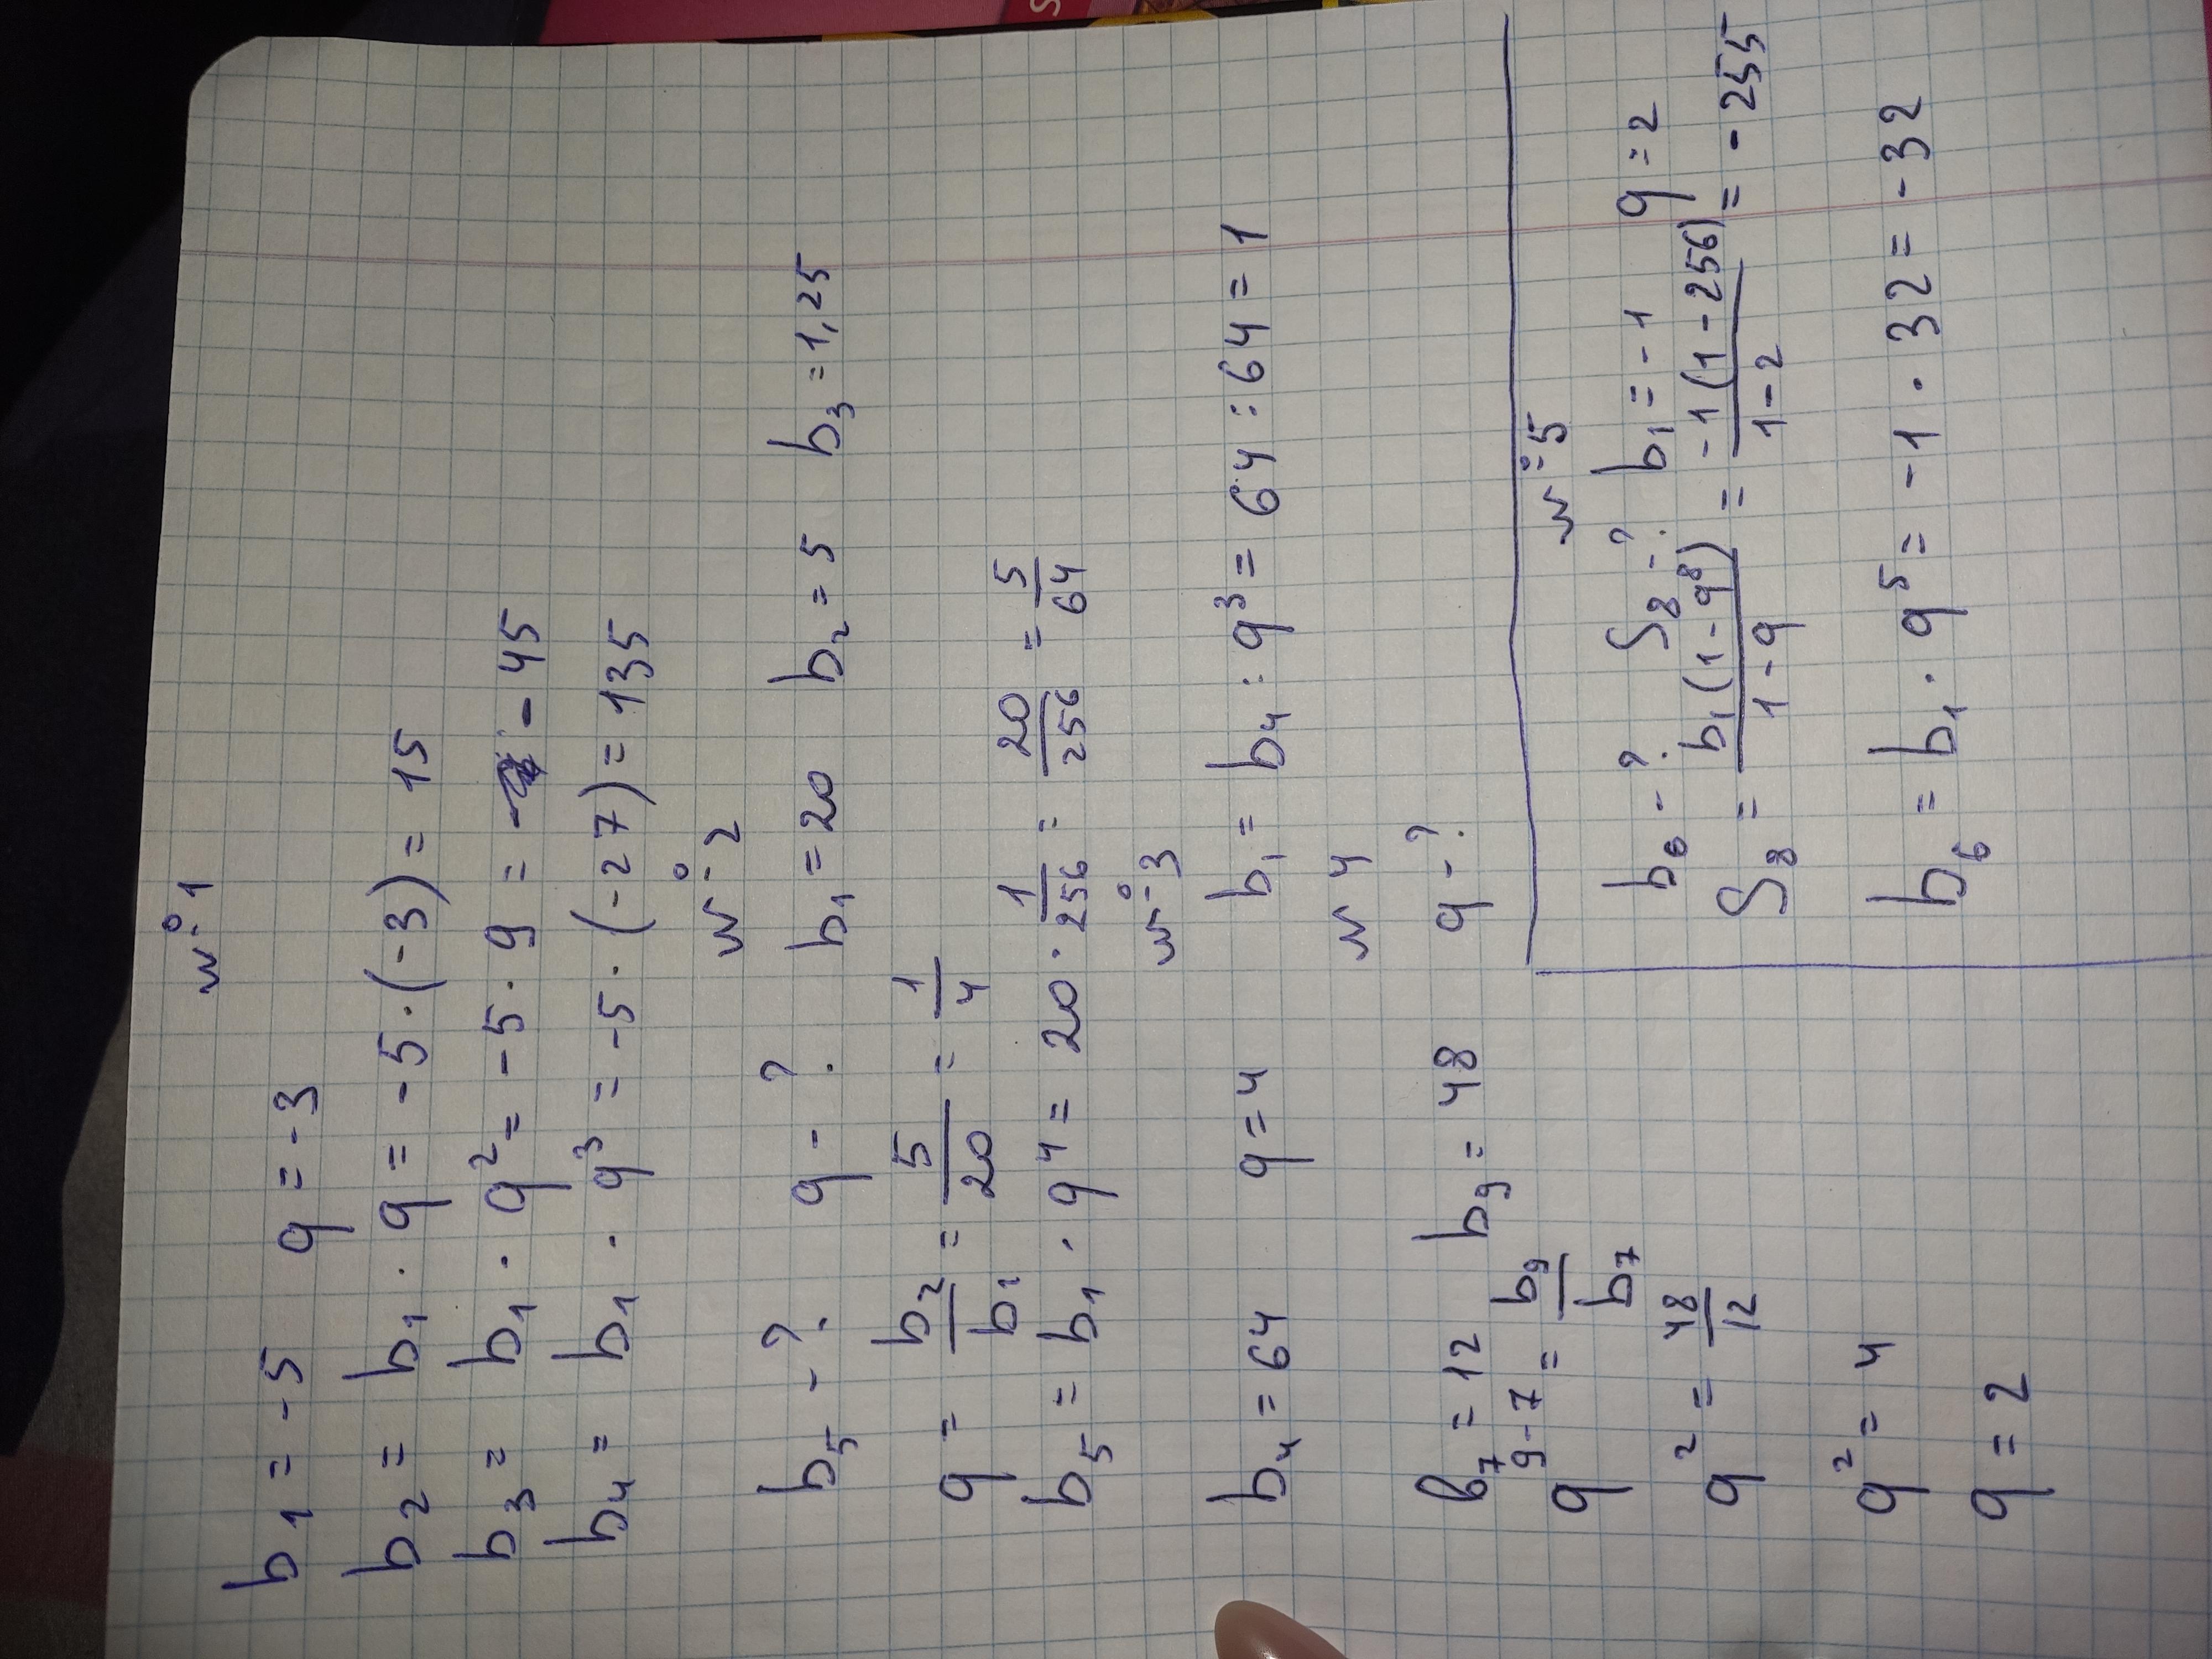 №1
b₁ = -5 q = -3
b₂ = b₁ · q = -5 · (-3) = 15
b₃ = b₁ · q² = -5 · 9 = -45
b₄ = b₁ · q³ = -5 · (-27) = 135
№2
b₅ - ? q - ? b₁ = 20 b₂ = 5 b₃ = 1,25
q = b₂/b₁ = 5/20 = 1/4
b₅ = b₁ · q⁴ = 20 · 1/256 = 20/256 = 5/64
№3
b₄ = 64 q = 4 b₁ = b₄ : q³ = 64 : 64 = 1
N 4
b₇ = 12 b₉ = 48 q - ?
q⁹⁻⁷ = b₉/b₇
q² = 48/12
q² = 4
q = 2
№5
b₆ - ? S₈ - ? b₁ = -1 q = 2
S₈ = b₁(1 - q⁸)/1 - q = -1(1 - 256)/1 - 2 = -255
b₆ = b₁ · q⁵ = -1 · 32 = -32